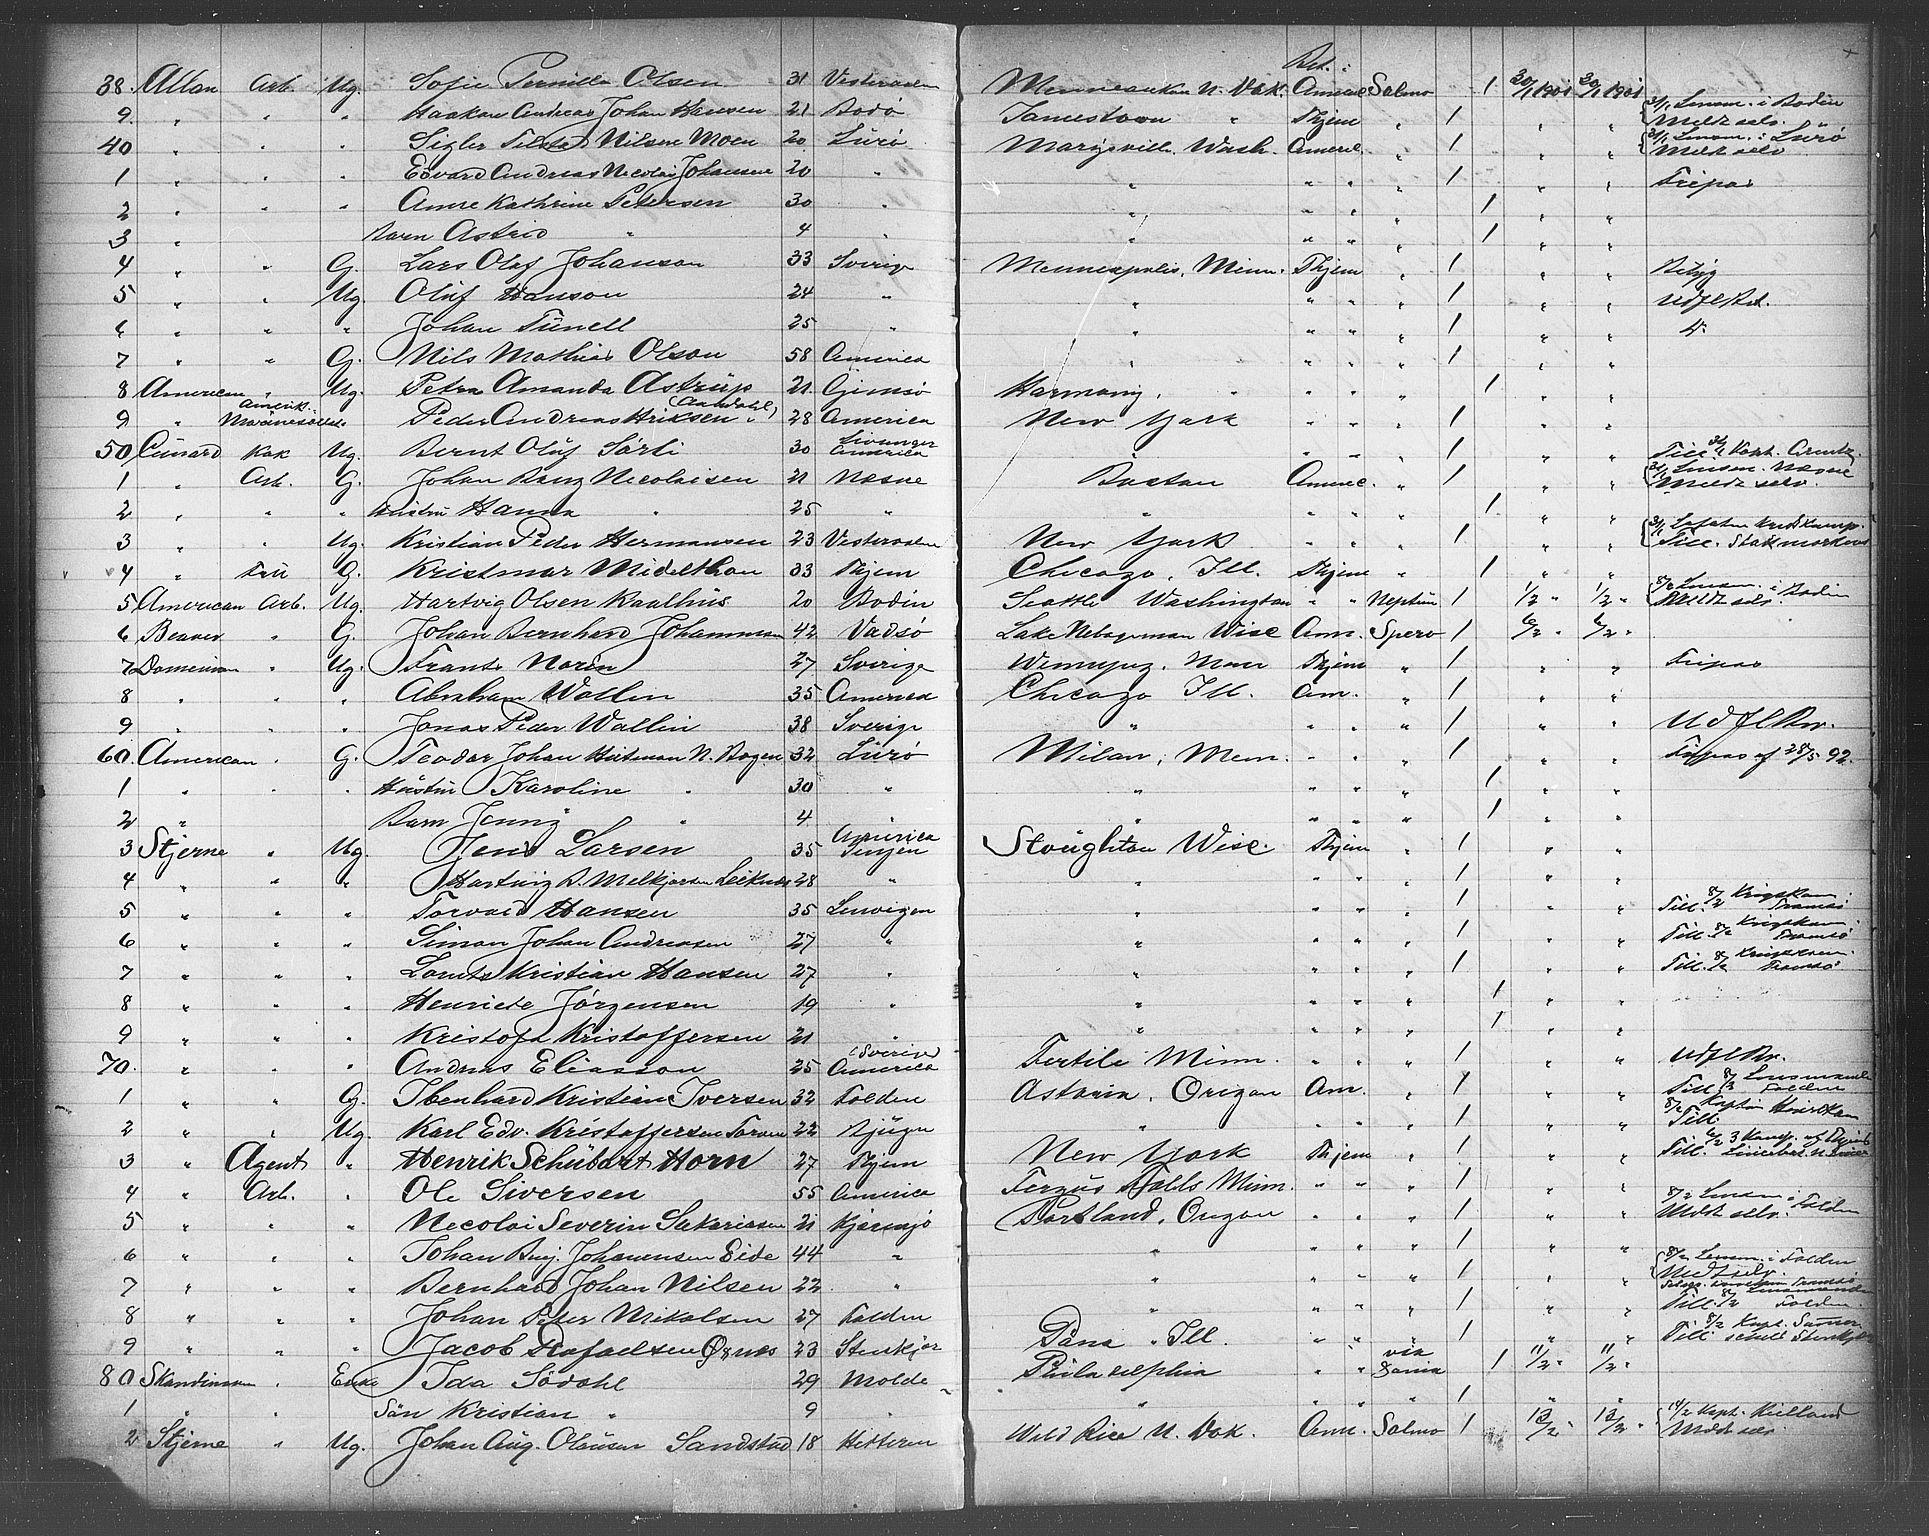 Bet.:
38. Allan Arb. Ug. Sofie Pernille Olsen 31 Vesteraalen Minnewaukan N. Dak. Americ Salmo 1 30/1 1901 30/1 1901
9 " " " Haakon Andreas Johan Hansen 21 Bodö Jamestown " Thjem " 1 " " 31/1 Lensm. i Bodin Meldt selv.
40 " " " Sigler Nilsen Moen 20 Lurö Marysville, Wash. Americ. " 1 " " 31/1 Lensm. i Lurö Meldt selv
1 " " " Edvard Andreas Nicolai Johansen 20 " " " " " 1 " " Fripas
2 " " " Anne Kathrine Petersen 30 " " " " " 1 " "
3 " Barn Astrid " 4 " " " " " 1 " "
4 " " G. Lars Olof Johanson 33 Sverige Menneapolis, Minn. Thjem " 1 " "
5 " " Ug. Oluf Hanson 24 " " " " " 1 " " Udfl Bet.
6 " " " Johan Tunell 25 " " " " " 1 " "
7 " " G. Nils Mathias Olson 58 America " " " " 1 " "
8 American " Ug. Petra Amanda Astrup 21 Gimsö Harmony, " " " " 1 " "
9 " Amerik. Peder Andreas Hriksen (Aandahl) 28 America New York " " " 1 " "
50 Cunard Kok Ug. Bernt Oluf Sörli 30 Levanger America " " " " 1 " " Till. Kapt. Arentz
1 " Arb. G. Johan Banz Nicolaisen 21 Nesne Boston Americ. " 1 " " 31/1 Lensm. Nesne Meldt selv.
2 " " " Hustru Hanna " 25 " " " " " 1 " "
3 " " Ug. Kristian Peder Hermansen 23 Vesteraalen New York " " " 1 " " 31/1 Lofoten Kredskomp. Till. Stokmarknes
4 " Fru G. Kristmar Midelthon 33 Thjem Chicago, Ill. Thjem " 1 " "
5 American Arb. Ug. Hartvig Olsen Kaalhus 20 Bodin Seattle Washington " " Neptun 1 1/2 " 1/2 " 8/2 Lensm. i Bodin Meldt selv.
6 Beaver " G. Johan Bernhard Johannesen 42 Vadsö Lake Nebagaman Wisc Am. Spero 1 6/2 " 6/2 "
7 Dominion " Ug. Frants Norin 27 Sverige Winnipeg, Man Thjem " 1 " " Fripas
8 " " " Abraham Wallin 35 America Chicago Ill. Am. " 1 " "
9 " " " Jonas Peder Wallin 38 Sverige " " " " 1 " " Udfl Bev.
60. American " G. Teodor Johan Hartman N. Bogen 32 Lurö Milan, Menn. " " " 1 " " Fripas af 28/5 92.
1 " " " Hustru Karoline " 30 " " " " " 1 " "
2 " Barn Jenny " 4 " " " " " 1 " "
3 Stjerne " Ug. Jens Larsen 35 America Stoughton Wisc. Thjem " 1 " "
4 " " " Hartvig B. Melkjorsen Leiknes 28 " " " " " 1 " "
5 " " " Torvald Hansen 35 Lenvigen " " " " 1 " " Till. 8/2 Krigskom. Tromsö
6 " " " Simon Johan Andreasen 27 " " " " " 1 " " Till 8/2 Krigskom. Tromsö
7 " " " Kristian Hansen 27 " " " " " 1 " " Till. 8/2 Krigskom. Tromsö
8 " " " Henriete Jörgensen 19 " " " " " 1 " "
9 " " " Kristofa Kristoffersen 21 " " " " " 1 " "
70. " " " Andreas Eliasson 25 (Sverige) America Fertile Minn. " " " 1 " " Udfl Bv.
1 " " G. Ibenhard Kristian Iversen 32 Folden Astoria, Origon Am. " 1 " " Till. Lensmand Folden
2 " " Ug. Karl Edv. Kristoffersen 22 Bjugn " " " " 1 " " 8/2 Kaptin Till.
3 " Agent " Henrik Schubart Horn 27 Thjem New York Thjem " 1 " " Till.
4 " Arb. " Ole Siversen 55 America Fergus Falls Minn. " " " 1 " "
5 " " " Necolai Severin Sakariasen 21 Kjerringö Portland, Origon " " " 1 " " 8/2 Lensm. i Folden Meldt selv.
6 " " " Johan Benj. Johannesen Eide 44 " " " " " 1 " "
7 " " " Bernhard Johan Nilsen 22 " " " " " 1 " " 8/2 Lensm. i Folden Meldt selv.
8 " " " Johan Peter Nikolsen 27 Folden " " " " 1 " " Till. 8/2 Lensmand Folden.
9 " " " Jacob Rafaelsen Öynes 23 Stenkjer Pana " Ill. " " " 1 " " 8/2 Kapt. Till
80 Skandinavian " Enke Ida Södahl 29 Molde Philadelphia " " via Dania 1 11/2 " 11/2 "
1 " " Sön Kristian " 9 " " " " " 1 " "
2 Stjerne " Ug. Johan Aug. Olausen Sandstad 18 Hitteren Wild Rice N. Dak. Am. Salmo 1 13/2 " 13/2 " 14/2 Kapt. Kielland Meldt selv